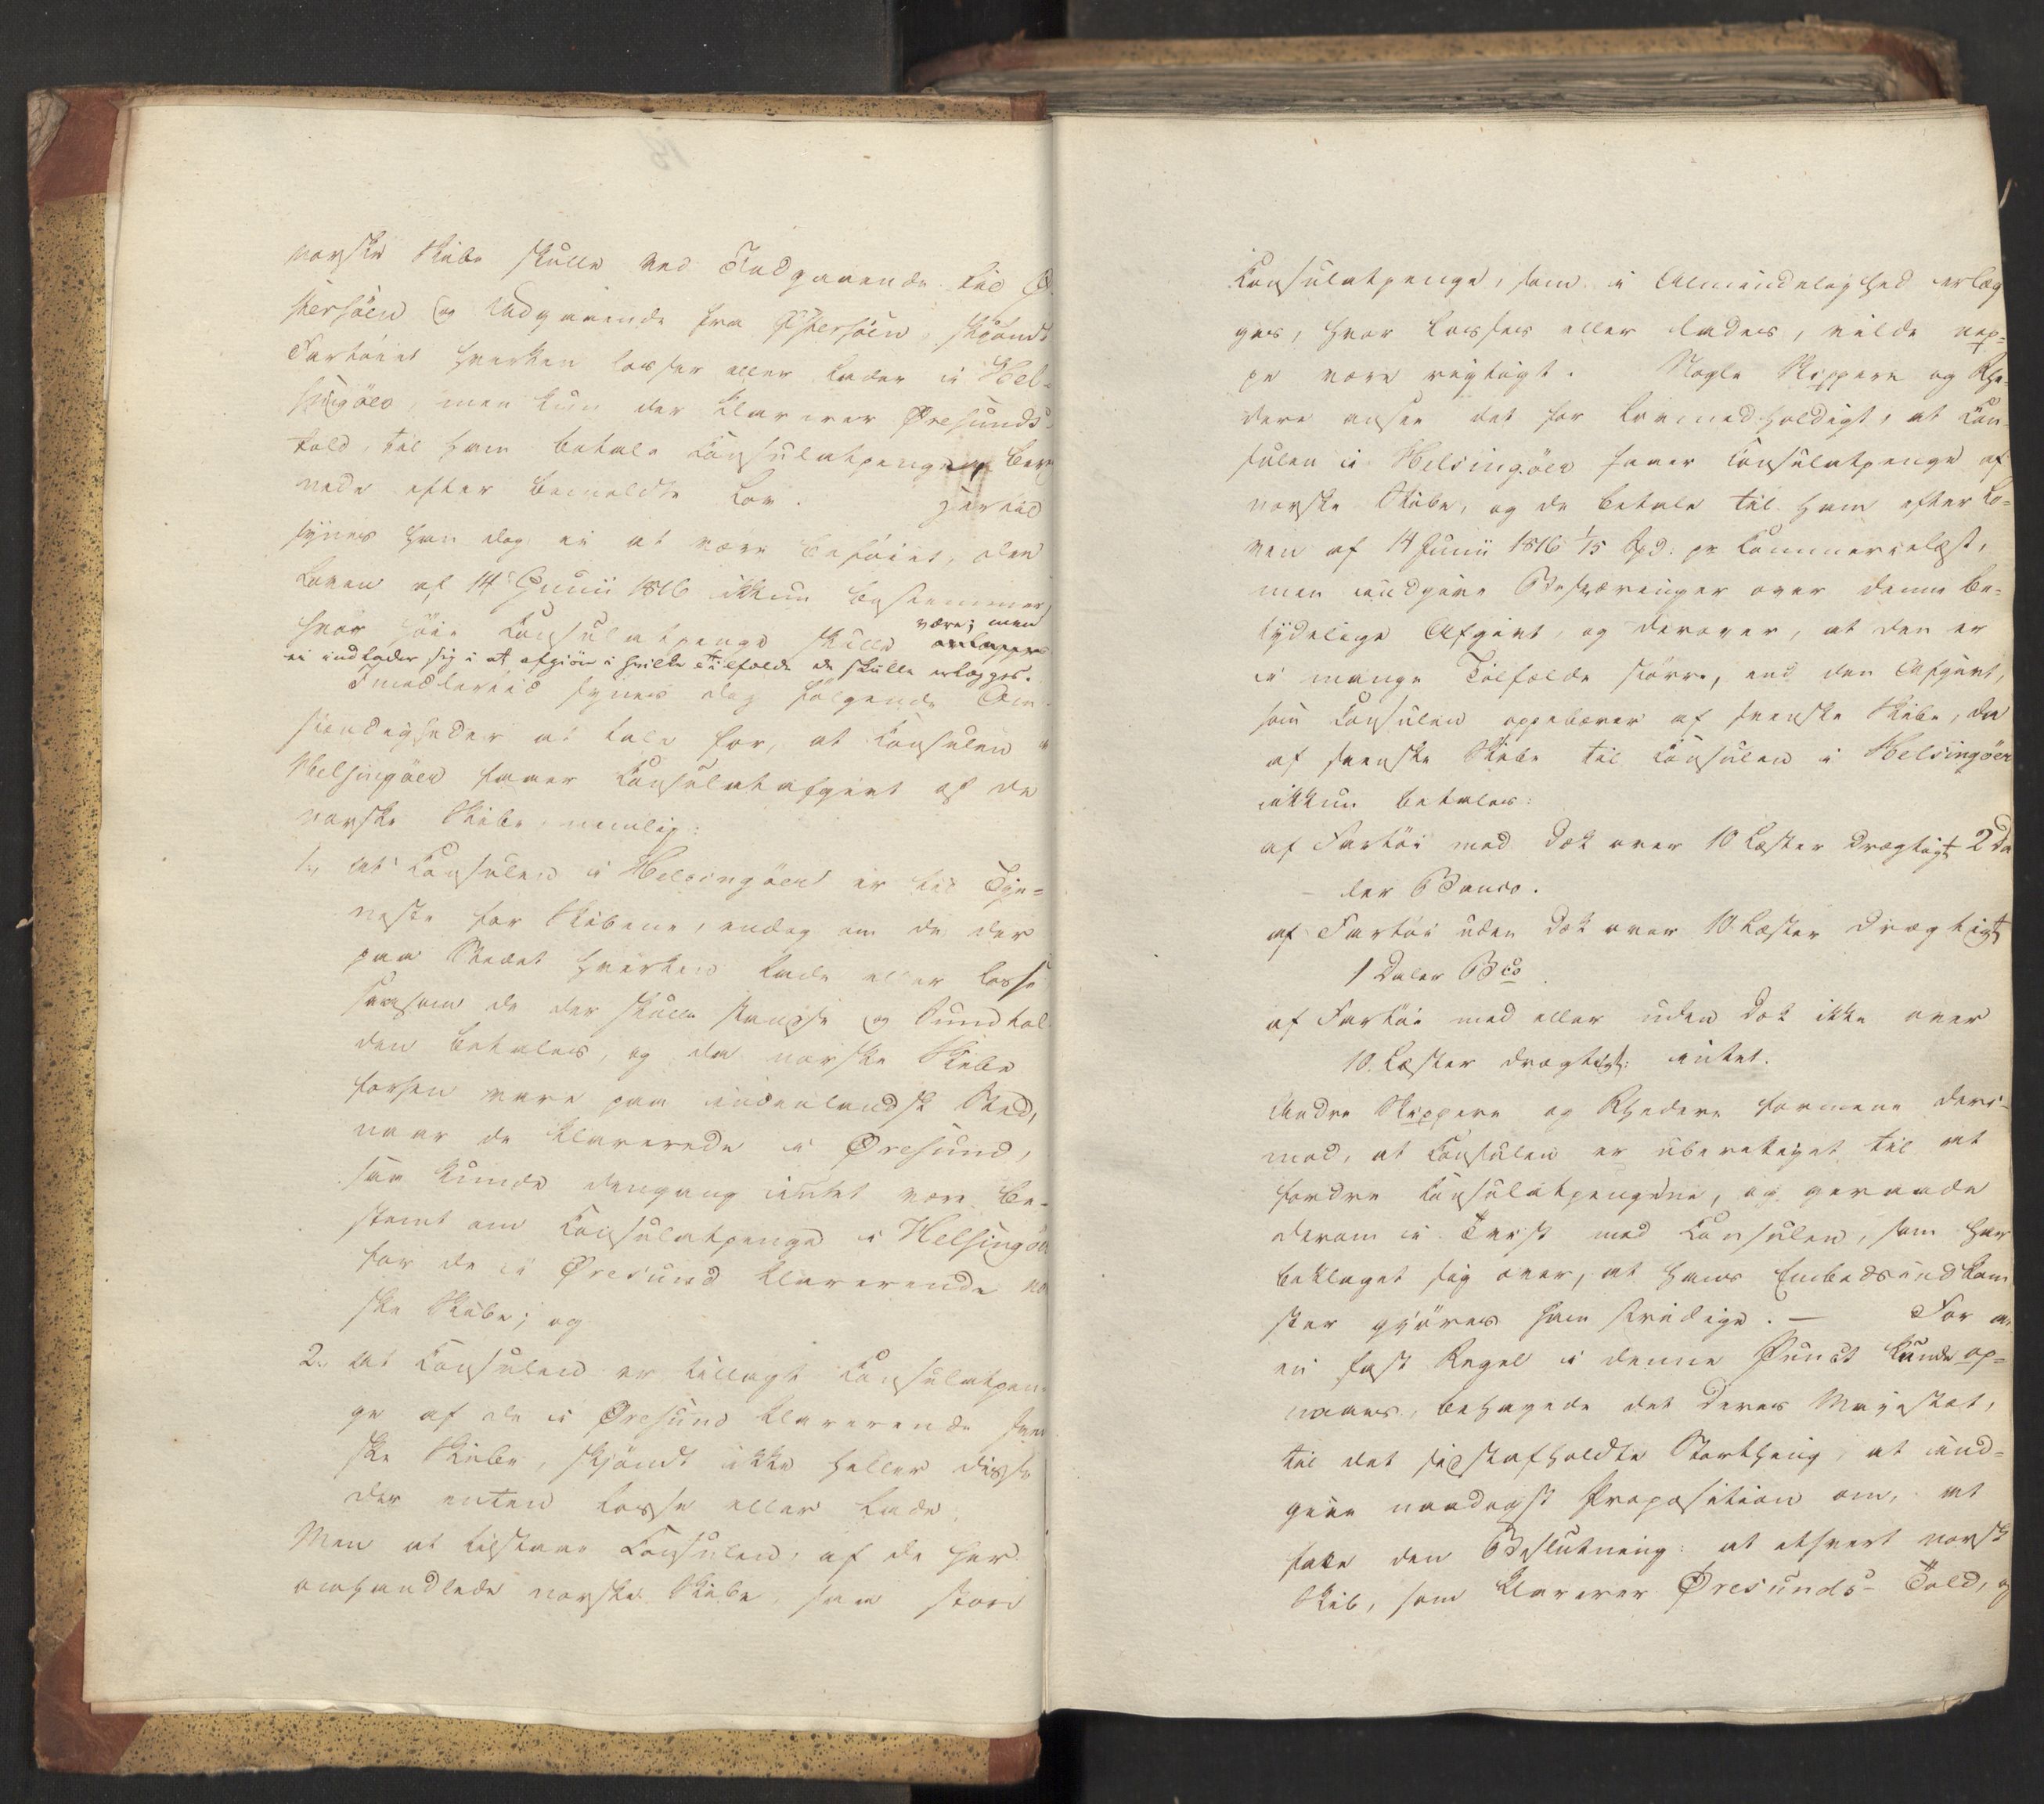 norske Skibe skulle ved Indgaaende til Ø-
stersöen og Udgaaende fra Østersöen, skjöndt
Fartöiet hverken losser eller lader i Hel-
singöer, men kun der klarerer Øresunds-
told, til ham betale Consulatpengene bereg
nede efter bemeldte Lov. Hertil
synes han dog ei at være beföiet, den
Loven af 14 Junii 1816 ikkun bestemmer,
hvor höie Consulatpenge skulle være; men
ei indlader sig i at afgjöre i hvilke Tilfælde de skulle erlægges.
Imidlertid synes dog fölgende Om-
stændigheder at tale for, at Consulen i
Helsingöer faaer Consulatafgivt af de
norske Skibe, nemlig:
1., at Consulen i Helsingöer er til Tje-
neste for Skibene, endog om de der
paa Stedet hverken lade eller losse
saasom de der skulle stoppe og Sundtol-
den betales, og da norske Skibe
forhen vare paa indenlandsk Sted,
naar de klarerede i Øresund,
saa kunde dengang intet være be-
stemt om Consulatpenge i Helsingöer
for de i Øresund klarerende nor
ske Skibe; og
2., at Consulen er tillagt Consulatpen-
ge af de i Øresund klarerende sven
ske Skibe, skjöndt ikke heller disse
der enten losse eller lade.
Men at tilstaae Consulen, af de her
omhandlede norske Skibe, saa store
Consulatpenge, som i Almindelighed erlæg
ges, hvor losses eller lades, vilde nep-
pe være rigtigt. Nogle Skippere og Rhe-
dere ansee det for lovmedholdigt, at Con-
sulen i Helsingöer faaer Consulatpenge af
norske Skibe, og de betale til ham efter Lo-
ven af 14 Junii 1816 1/15 Spd: pr Commercelæst,
men indgive Besværinger over denne be-
tydelige Afgivt, og derover, at den er
i mange Tilfælde större, end den Afgivt,
som Consulen oppebærer af svenske Skibe, da
af svenske Skibe til Consulen i Helsingöer
ikkun betales:
af Fartöi med Dæk over 10 Læster drægtigt 2 Da
ler Banco.
af Fartöi uden Dæk over 10 Læster drægtigt
1 Daler Bco.
af Fartöi med eller uden Dæk ikke over
10 Læster drægtigt: intet.
Andre Skippere og Rhedere formene deri-
mod, at Consulen er uberettiget til at
fordre Consulatpengene, og geraade
derom i Tvist med Consulen, som har
beklaget sig over, at hans Embedsindkom
ster gjöres ham stridige. — For at
en fast Regel i denne Punct kunde op-
naaes, behagede det Deres Majestæt,
til det sidstafholdte Storthing, at ind-
give naadigst Proposition om, at
fatte den Beslutning: at ethvert norsk
Skib, som klarerer Øresunds-Told, og